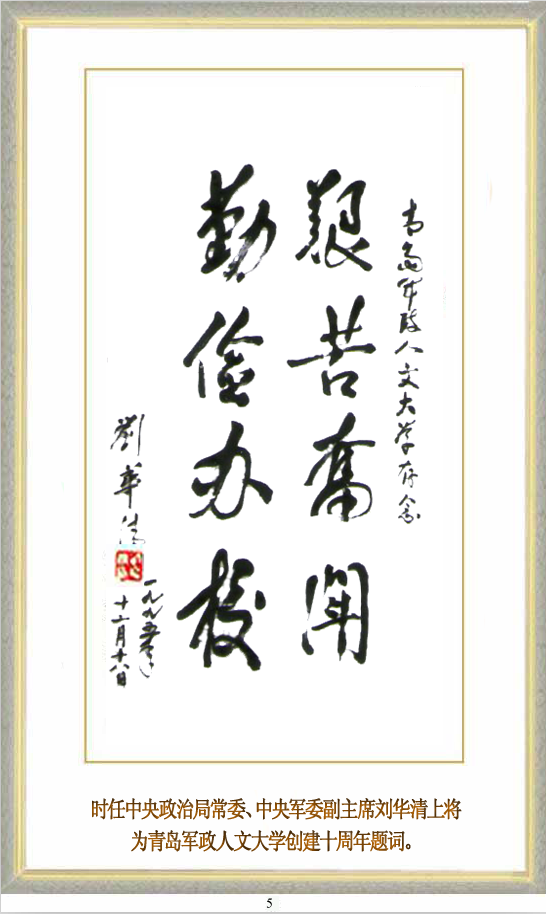 青岛军政人文大学存念
艱苦奮鬥
勤儉办校
劉華清
一九九五年
十二月十八日
时任中央政治局常委、中央军委副主席刘华清上将
为青岛军政人文大学创建十周年题词。
5